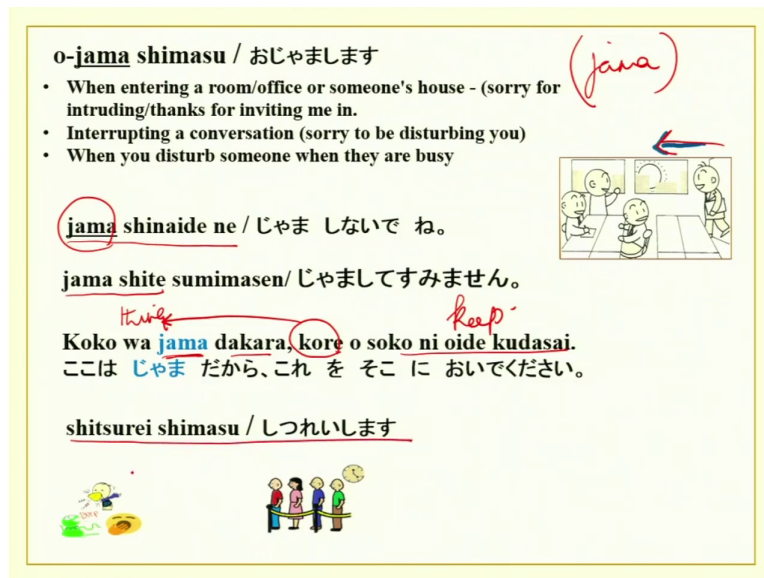 o-jama shimasu / おじゃまします
(jama)
• When entering a room/office or someone's house - (sorry for
intruding/thanks for inviting me in.
• Interrupting a conversation (sorry to be disturbing you)
• When you disturb someone when they are busy
jama shinaide ne / じゃま しないで ね。
jama shite sumimasen/ じゃましてすみません。
thing keep
Koko wa jama dakara, kore o soko ni oide kudasai.
ここは じゃま だから、これ を そこ に おいでください。
shitsurei shimasu / しつれいします